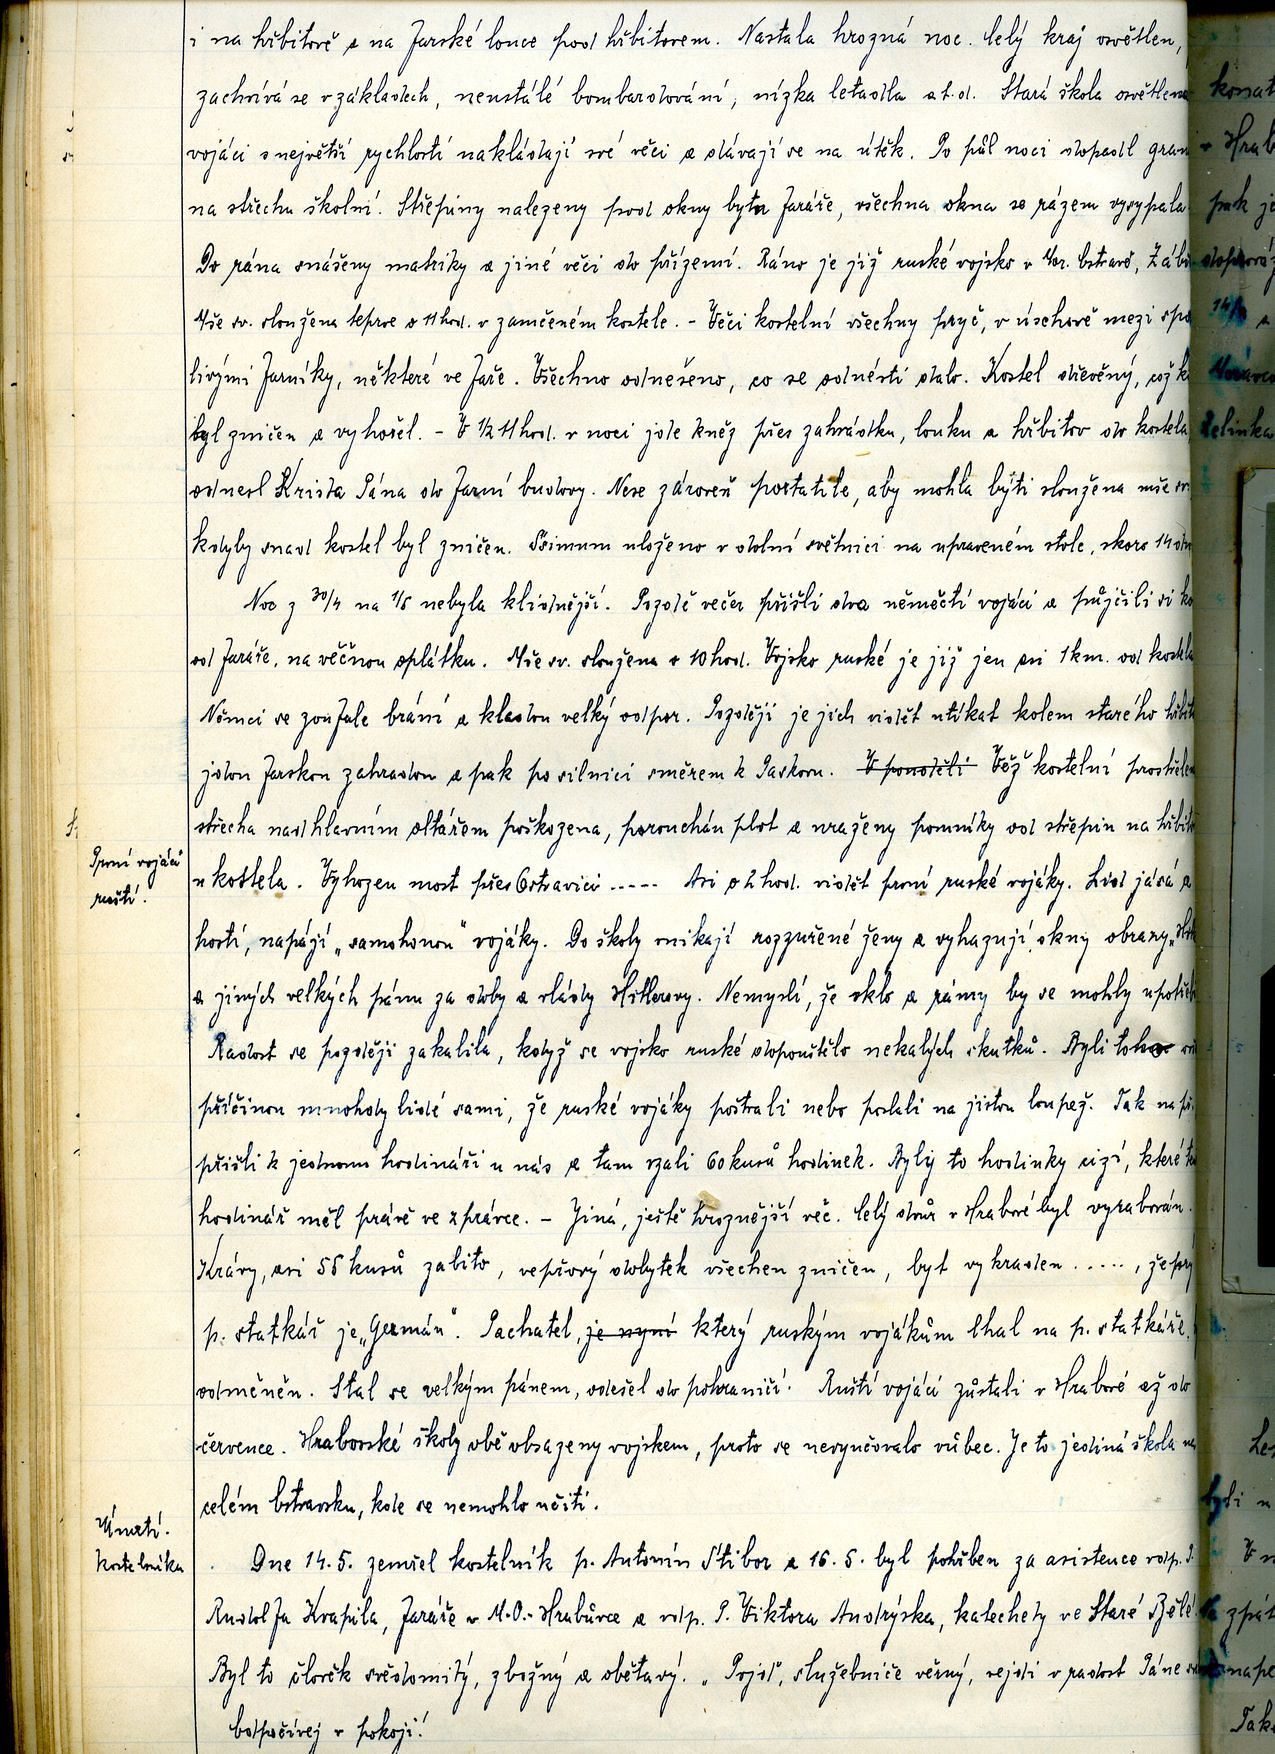 i na hřbitově a na farské louce pod hřbitovem. Nastala hrozná noc. Celý kraj osvětlen,
zachvívá se v základech, neustálé bombardování, nízka letadla a t. d. Stará škola osvětlena
vojáci s největší rychlostí nakládají své věci a dávají se na útěk. Po půl noci dopadl gran
na střechu školní. Střepiny nalezeny pod okny bytu faráře, všechna okna se rázem vysypala
Do rána snášeny matriky a jiné věci do přízemí. Ráno je již ruské vojsko v Mor. Ostravě, Zábř
Mše sv. sloužena teprve o 11 hod. v zamčeném kostele. - Věci kostelní všechny pryč, v úschově mezi spo
livými farníky, některé ve faře. Všechno odnešeno, co se odnésti dalo. Kostel dřevěný, což k
byl zničen a vyhořel. - V 1/2 11 hod. v noci jde kněz přes zahrádku, louku a hřbitov do kostela
odnesl Krista Pána do farní budovy. Nese zároveň portatile, aby mohla býti sloužena mše sv.
kdyby snad kostel byl zničen. Ssimum uloženo v dolní světnici na upraveném stole, skoro 14 dn
Noc z 30/4 na 1/5 nebyla klidnější. Pozdě večer přišli dva němečtí vojáci a půjčili si ko
od faráře, na věčnou oplátku. Mše sv. sloužena o 10 hod. Vojsko ruské je již jen asi 1 km. od kostela
Němci se zoufale brání a kladou velký odpor. Později je jich vidět utíkat kolem starého hřbit
jdou farskou zahradou a pak po silnici směrem k Paskovu. V pondělí Věž kostelní prostřelen
střecha nad hlavním oltářem poškozena, porouchán plot a uraženy pomníky od střepin na hřbito
První vojáci
ruští.
u kostela. Vyhozen most přes Ostravici ..... Asi o 2 hod. vidět první ruské vojáky. Lid jásá a
hostí, napájí „samohonou" vojáky. Do školy vnikají rozzuřené ženy a vyhazují okny obrazy
a jiných velkých pánu za doby a vlády Hitlerovy. Nemyslí, že sklo a rámy by se mohly upotřeb
Radost se později zakalila, když se vojsko ruské dopouštělo nekalých skutků. Byli toho
příčinou mnohdy lidé sami, že ruské vojáky poštvali nebo poslali na jistou loupež. Tak na př.
přišli k jednomu hodináři u nás a tam vzali 60 kusů hodinek. Byly to hodinky cizí, které t
hodinář měl právě ve zprávce. - Jiná, ještě hroznější věc. Celý dvůr v Hrabové byl vyrabován.
Krávy, asi 55 kusů zabito, vepřový dobytek všechen zničen, byt vykraden ....., že prý
p. statkář je „Germán". Pachatel, je nyní který ruským vojákům lhal na p. statkáře,
odměněn. Stal se velkým pánem, odešel do pohraničí. Ruští vojáci zůstali v Hrabové až do
července. Hrabovské školy obě obsazeny vojskem, proto se nevyučovalo vůbec. Je to jediná škola na
celém Ostravsku, kde se nemohlo učiti.
Úmrtí.
kostelníka
Dne 14. 5. zemřel kostelník p. Antonín Stibor a 16. 5. byl pohřben za asistence vdp. P.
Rudolfa Kvapila, faráře v M.O.- Hrabůvce a vdp. P. Viktora Andrýska, katechety ve Staré Bělé
Byl to člověk svědomitý, zbožný a obětavý. „Pojď, služebníče věrný, vejdi v radost Páně
Odpočívej v pokoji!